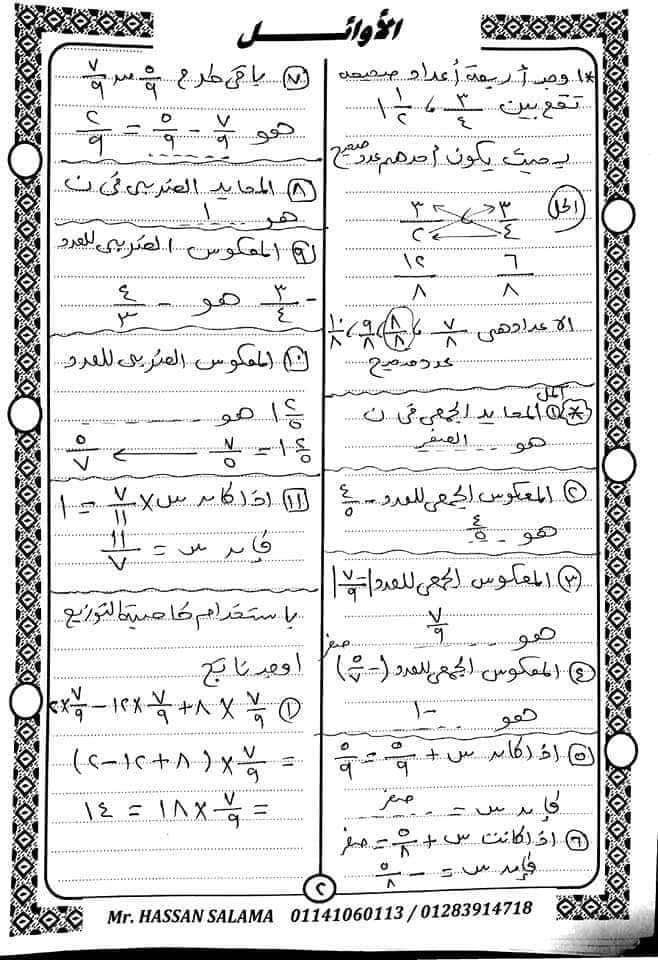 الأوائل
* أوجد أربعة أعداد صحيحه
تقع بين ٣/٤ ، ١ ١/٢
بحيث يكون أحدهم عدد صحيح
الحل
٣/٤ ، ٣/٢
٦/٨ ١٢/٨
الاعداد هى ٧/٨ ، ٨/٨ ، ٩/٨ ، ١٠/٨
عدد صحيح
* أكمل
① المحايد الجمعى فى ن
هو .. الصفر
② المعكوس الجمعى للعدد - ٤/٥
هو .. ٤/٥
③ المعكوس الجمعى للعدد |- ٧/٩|
هو .. ٧/٩
④ المعكوس الجمعى للعدد (- ٥/٧) صفر
هو ١-
⑤ اذا كان س + ٥/٩ = ٥/٩
فإن س = صفر
⑥ اذا كانت س + ٥/٨ = صفر
فإن س = - ٥/٨
⑦ باقى طرح ٥/٩ من ٧/٩
هو ٧/٩ - ٥/٩ = ٢/٩
⑧ المحايد الضربى فى ن
هو ١
⑨ المعكوس الضربى للعدد
- ٣/٤ هو - ٤/٣
⑩ المعكوس الضربى للعدد
١ ٢/٥ هو
١ ٢/٥ = ٧/٥ ← ٥/٧
⑪ اذا كان س × ٧/١١ = ١
فإن س = ١١/٧
باستخدام خاصية التوزيع
اوجد ناتج
① ٧/٩ × ٨ + ٧/٩ × ١٢ - ٧/٩ × ٢
= ٧/٩ × (٨ + ١٢ - ٢)
= ٧/٩ × ١٨ = ١٤
٢
Mr. HASSAN SALAMA 01141060113 / 01283914718